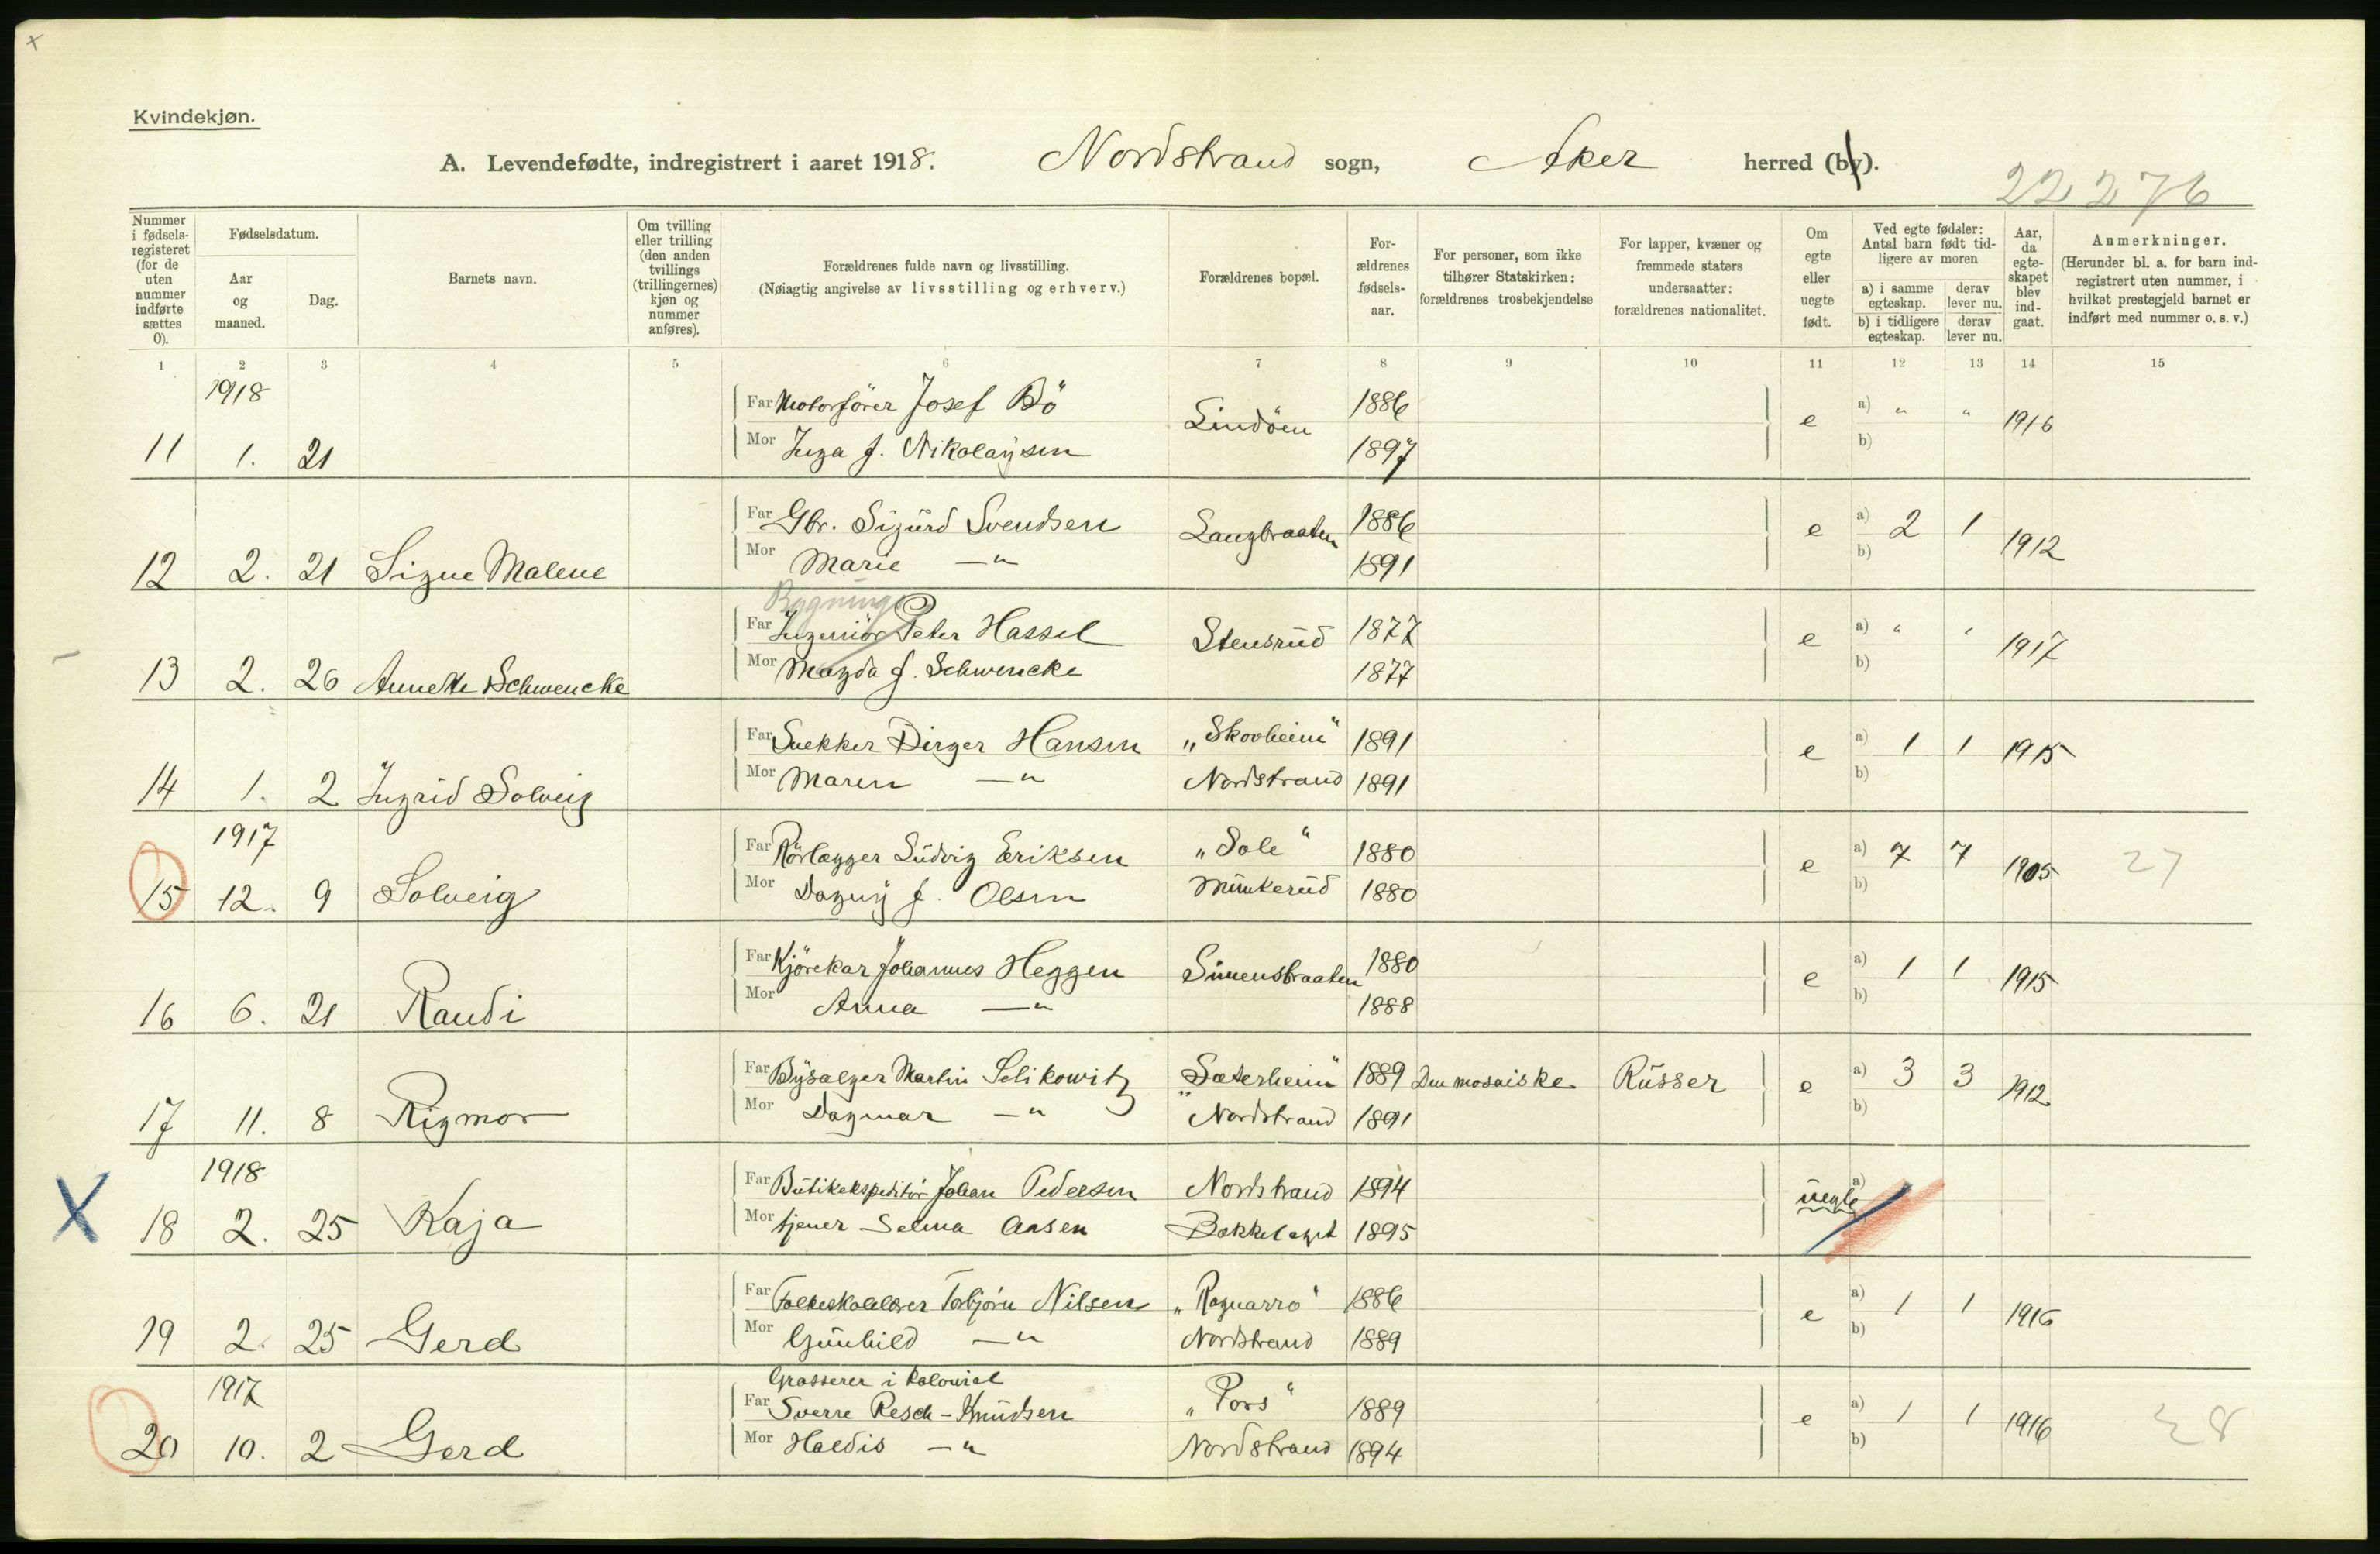 Kvindekjøn.
A. Levendefødte, indregistrert i aaret 1918. Nordstrand sogn, Aker herred (by).
22276
Nummer i fødselsregisteret (for de uten nummer indførte sættes 0).
Fødselsdatum.
Aar og maaned.
Dag.
Barnets navn.
Om tvilling eller trilling (den anden tvillings (trillingernes) kjøn og nummer anføres).
Forældrenes fulde navn og livsstilling.
(Nøiagtig angivelse av livsstilling og erhverv.)
Forældrenes bopæl.
For-ældrenes fødsels-aar.
For personer, som ikke tilhører Statskirken: forældrenes trosbekjendelse
For lapper, kvæner og fremmede staters undersaatter: forældrenes nationalitet.
Om egte eller uegte født.
Ved egte fødsler: Antal barn født tid-ligere av moren
a) i samme egteskap. derav lever nu.
b) i tidligere egteskap. derav lever nu.
Aar, da egte-skapet blev ind-gaat.
Anmerkninger.
(Herunder bl. a. for barn ind-registrert uten nummer, i hvilket prestegjeld barnet er indført med nummer o. s. v.)
1 2 3 4 5 6 7 8 9 10 11 12 13 14 15
1918
Far Motorfører Josef Bö Lindöen 1886 e a) " " 1916
11 1. 21 Mor Inga f. Nikolaysen 1897 b)
Far Gbr. Sigurd Svendsen Langbraaten 1886 e a) 2 1 1912
12 2. 21 Signe Malene Mor Marie —"— 1891 b)
Bygnings
Far Ingeniör Peter Hassel Stensrud 1877 e a) " " 1917
13 2. 26 Annette Schwencke Mor Magda f. Schwencke 1877 b)
Far Snekker Birger Hansen „Skovheim" 1891 e a) 1 1 1915
14 1. 2 Ingrid Solveig Mor Maren —"— Nordstrand 1891 b)
1917
Far Rörlægger Ludvig Eriksen „Sole" 1880 e a) 7 7 1905 27
15 12. 9 Solveig Mor Dagny f. Olsen Munkerud 1880 b)
Far Kjörekar Johannes Heggen Simensbraaten 1880 e a) 1 1 1915
16 6. 21 Randi Mor Anna —"— 1888 b)
Far Bysælger Martin Selikowitz „Sæterheim" 1889 Den mosaiske Russer e a) 3 3 1912
17 11. 8 Rigmor Mor Dagmar —"— Nordstrand 1891 b)
1918
Far Butikekspeditör Johan Pedersen Nordstrand 1894 uegte a)
X 18 2. 25 Kaja Mor tjener Selma Aasen Bekkelaget 1895
Far Folkeskolelærer Torbjörn Nilsen „Ragnarro" 1886 e a) 1 1 1916
19 2. 25 Gerd Mor Gunhild —"— Nordstrand 1889 b)
Grosserer i kolonial
1917
Far Sverre Resch-Knudsen „Fors" 1889 e a) 1 1 1916 28
20 10. 2 Gerd Mor Haldis —"— Nordstrand 1894 b)